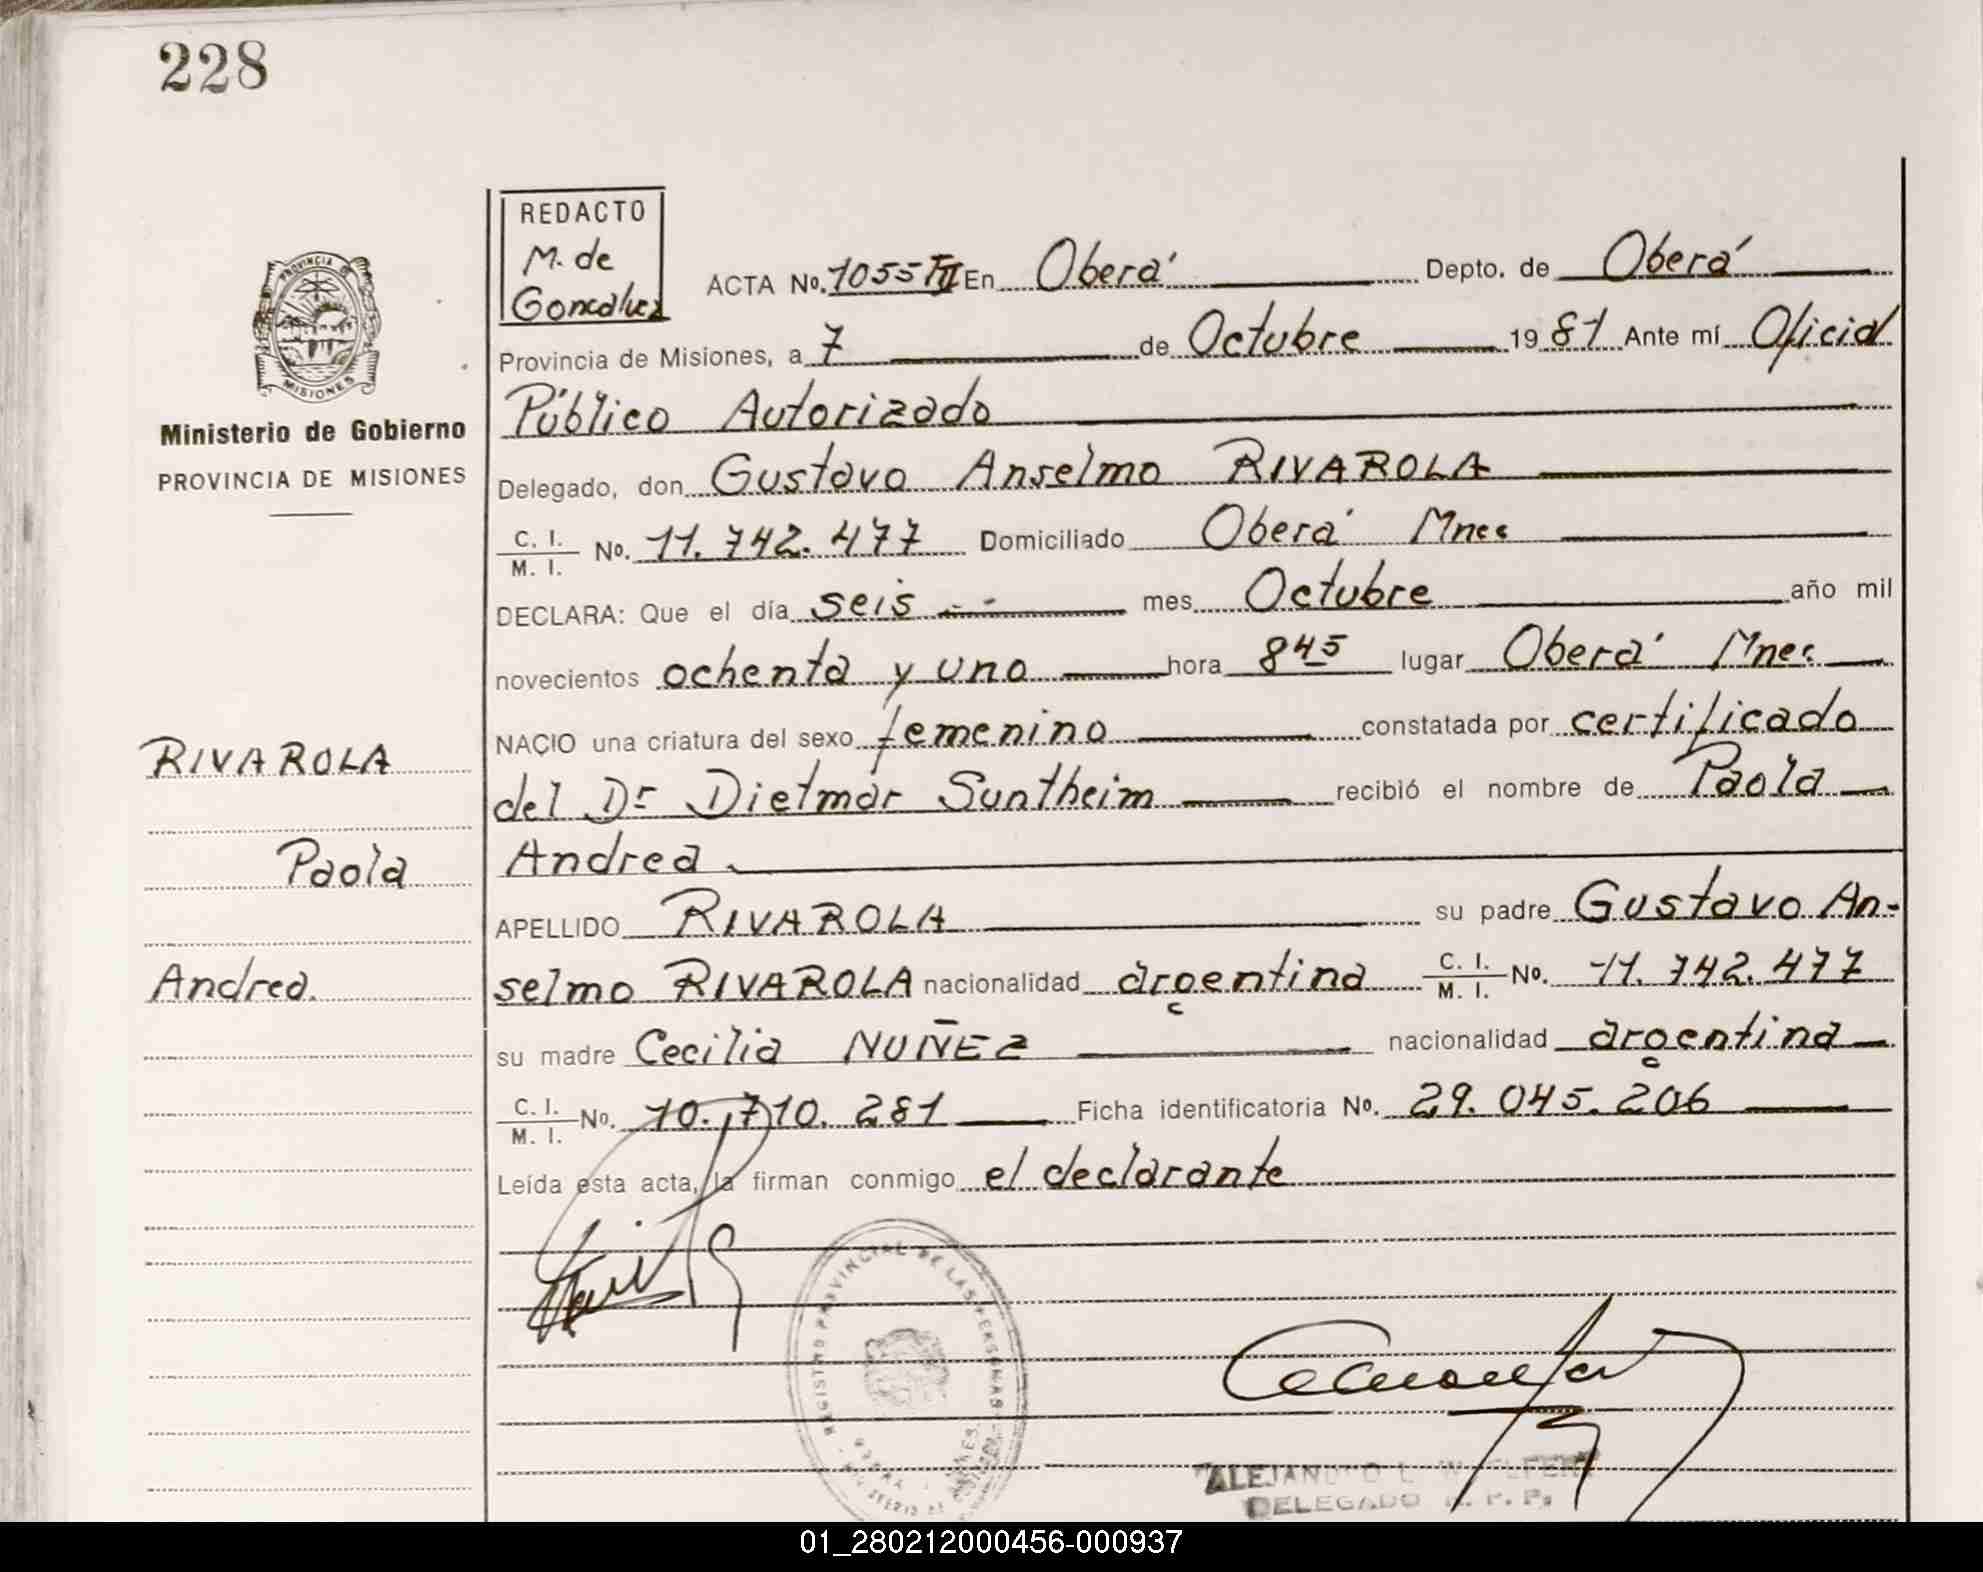 228
REDACTO
M. de
Goncalvez
PROVINCIA DE
MISIONES
Ministerio de Gobierno
PROVINCIA DE MISIONES
ACTA No. 1055 TII En Oberá Depto. de Oberá
Provincia de Misiones, a 7 de Octubre 1981 Ante mí Oficial
Público Autorizado
Delegado, don Gustavo Anselmo RIVAROLA
C. I. / M. I. No. 11.742.477 Domiciliado Oberá Mnes
DECLARA: Que el día seis mes Octubre año mil
novecientos ochenta y uno hora 845 lugar Oberá Mnes.
NACIO una criatura del sexo femenino constatada por certificado
del Dr Dietmar Suntheim recibió el nombre de Paola
Andrea
APELLIDO RIVAROLA su padre Gustavo An-
selmo RIVAROLA nacionalidad argentina C. I. / M. I. No. 11.742.477
su madre Cecilia NUÑEZ nacionalidad argentina
C. I. / M. I. No. 10.710.281 Ficha identificatoria No. 29.045.206
Leída esta acta, la firman conmigo el declarante
RIVAROLA
Paola
Andrea.
REGISTRO PROVINCIAL DE LAS PERSONAS
OBERA
ALEJANDRO L.
DELEGADO R. P. P.
01_280212000456-000937